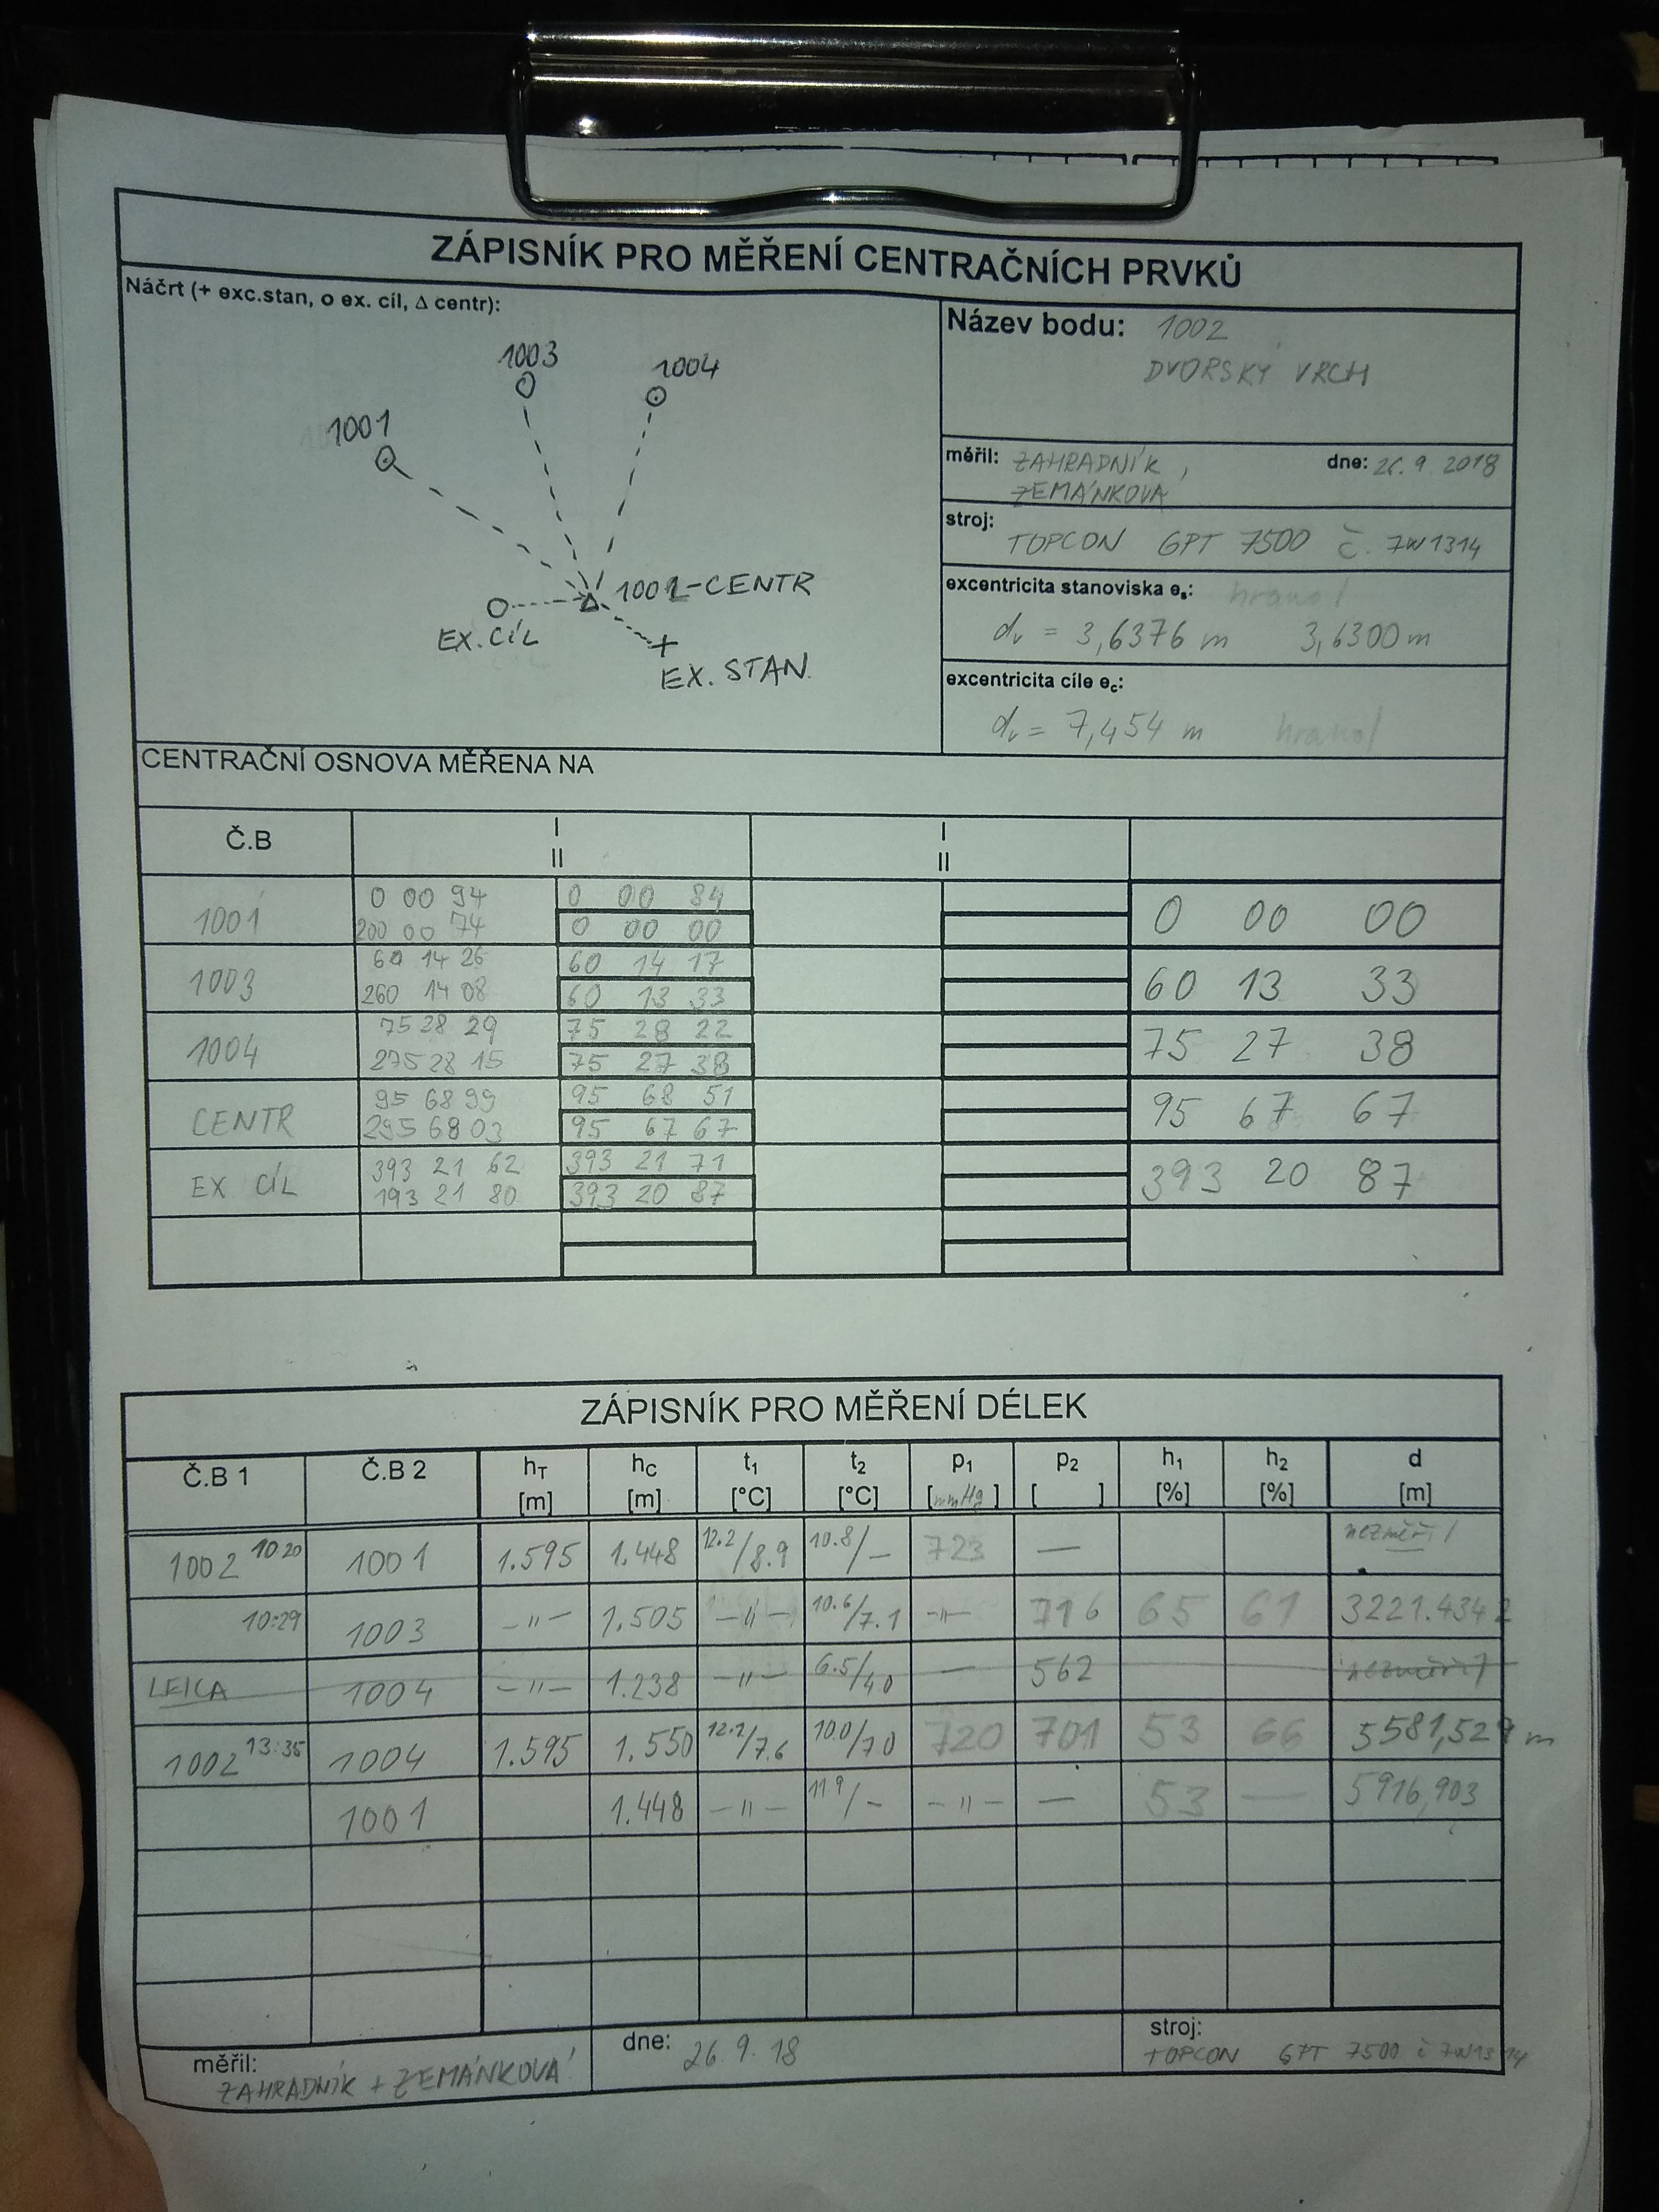 ZÁPISNÍK PRO MĚŘENÍ CENTRAČNÍCH PRVKŮ
Náčrt (+ exc.stan, o ex. cíl, Δ centr):
1003
1004
1001
1002-CENTR
EX. CÍL
EX. STAN.
Název bodu: 1002
DVORSKÝ VRCH
měřil: ZAHRADNÍK, dne: 26. 9. 2018
ZEMÁNKOVÁ
stroj:
TOPCON GPT 7500 č. 7W1314
excentricita stanoviska es: hranol
dv = 3,6376 m 3,6300 m
excentricita cíle ec:
dv = 7,454 m hranol
CENTRAČNÍ OSNOVA MĚŘENA NA
Č.B I I
II II
0 00 94 0 00 84
1001 0 00 00
200 00 74 0 00 00
60 14 26 60 14 17
1003 60 13 33
260 14 08 60 13 33
75 28 29 75 28 22
1004 75 27 38
275 28 15 75 27 38
95 68 99 95 68 51
CENTR 95 67 67
295 68 03 95 67 67
393 21 62 393 21 71
EX CÍL 393 20 87
193 21 80 393 20 87
ZÁPISNÍK PRO MĚŘENÍ DÉLEK
Č.B 1 Č.B 2 hT hC t1 t2 p1 p2 h1 h2 d
[m] [m] [°C] [°C] [mmHg] [ ] [%] [%] [m]
1002 10 20 1001 1.595 1.448 12.2/8.9 10.8/— 723 — nezměřil
10:29 1003 —"— 1.505 —"— 10.6/7.1 —"— 716 65 61 3221.4342
LEICA 1004 —"— 1.238 —"— 6.5/4.0 — 562 nezměřil
1002 13:35 1004 1.595 1.550 12.2/7.6 10.0/7.0 720 701 53 66 5581,529 m
1001 1.448 —"— 11.9/— —"— — 53 — 5916,903
měřil: ZAHRADNÍK + ZEMÁNKOVÁ dne: 26. 9. 18 stroj:
TOPCON GPT 7500 č 7W1314